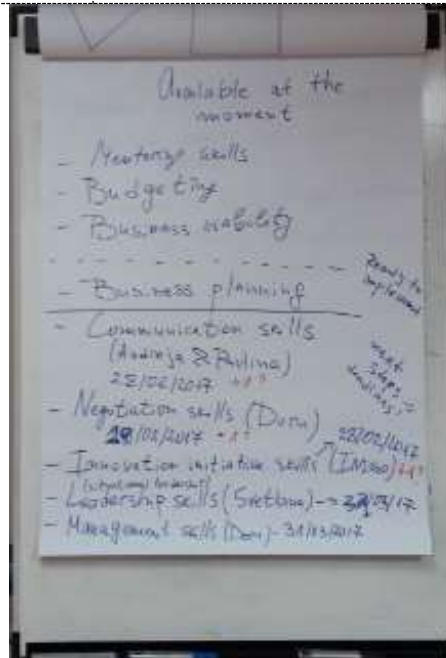 Available at the
moment
- Mentoring skills
- Budgeting
- Business viability
- Business planning
Ready to
implement
- Communication skills
(Andreja & Paulina)
28/02/2017 +1?
next
steps
deadlines
- Negotiation skills (Doru)
/02/2017 +1?
28/02/2017
- Innovation initiative skills ( +1?
- Leadership skills (Svetlana) → /03/17
- Management skills (Doru) - 31/03/2017